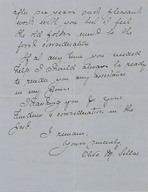 after six years such pleasant
work with you but I feel
the old folks must be the
first consideration
If at any time you needed
help I should always be ready
to render you any assistance
in my power.
Thanking you for your
kindness & consideration in the
past.
I remain,
Yours sincerely
M.